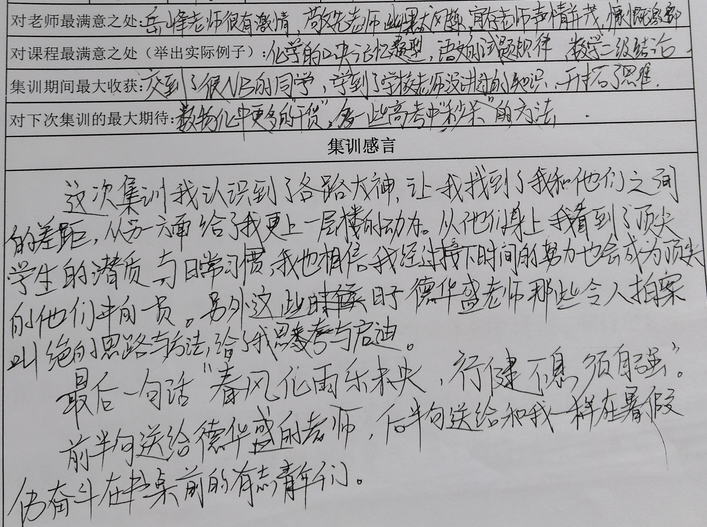 对老师最满意之处:岳峰老师很有激情,老师幽默风趣,老师声情并茂,慷慨激昂
对课程最满意之处(举出实际例子):化学的记忆模型,语文的试题规律 数学二级结论.
集训期间最大收获:交到了很NB的同学,学到了学校老师没讲过的知识,开拓了思维
对下次集训的最大期待:数物化中更多的“干货”,多一些高考中“秒杀”的方法.
集训感言
这次集训我认识到了各路大神,让我找到了我和他们之间
的差距,从另一方面给了我更上一层楼的动力。从他们身上我看到了顶尖
学生的潜质与日常习惯,我也相信我经过接下时间的努力也会成为顶尖
的他们中的一员。另外这些日子德华盛老师那些令人拍案
叫绝的思路与方法,给了我思考与启迪。
最后一句话“春风化雨乐未央,行健不息须自强”。
前半句送给德华盛的老师,后半句送给和我一样在暑假
仍奋斗在书桌前的有志青年们。